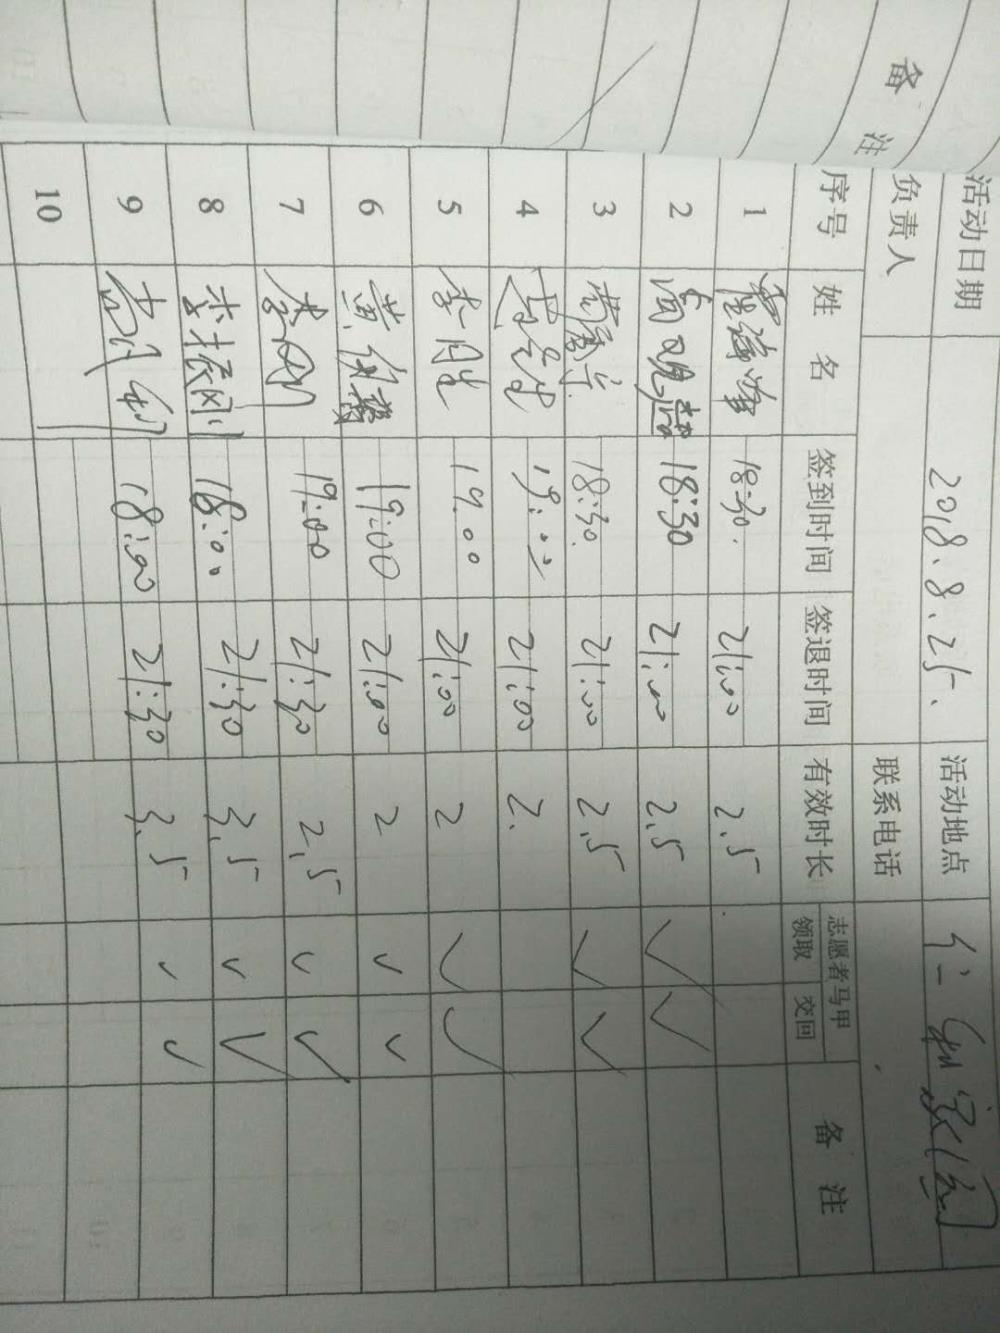 备 注
活动日期 2018.8.25. 活动地点 仁和家园
负责人 联系电话
序号 姓 名 签到时间 签退时间 有效时长 志愿者马甲 备 注
领取 交回
1 18:30. 21:00 2.5
2 18:30 21:00 2.5 ✓ ✓
3 18:30. 21:00 2.5 ✓ ✓
4 19:00 21:00 2.
5 李月生 19:00 21:00 2 ✓ ✓
6 黄 19:00 21:00 2 ✓ ✓
7 李刚 19:00 21:30 2.5 ✓ ✓
8 李振刚 18:00 21:30 3.5 ✓ ✓
9 18:00 21:30 3.5 ✓ ✓
10